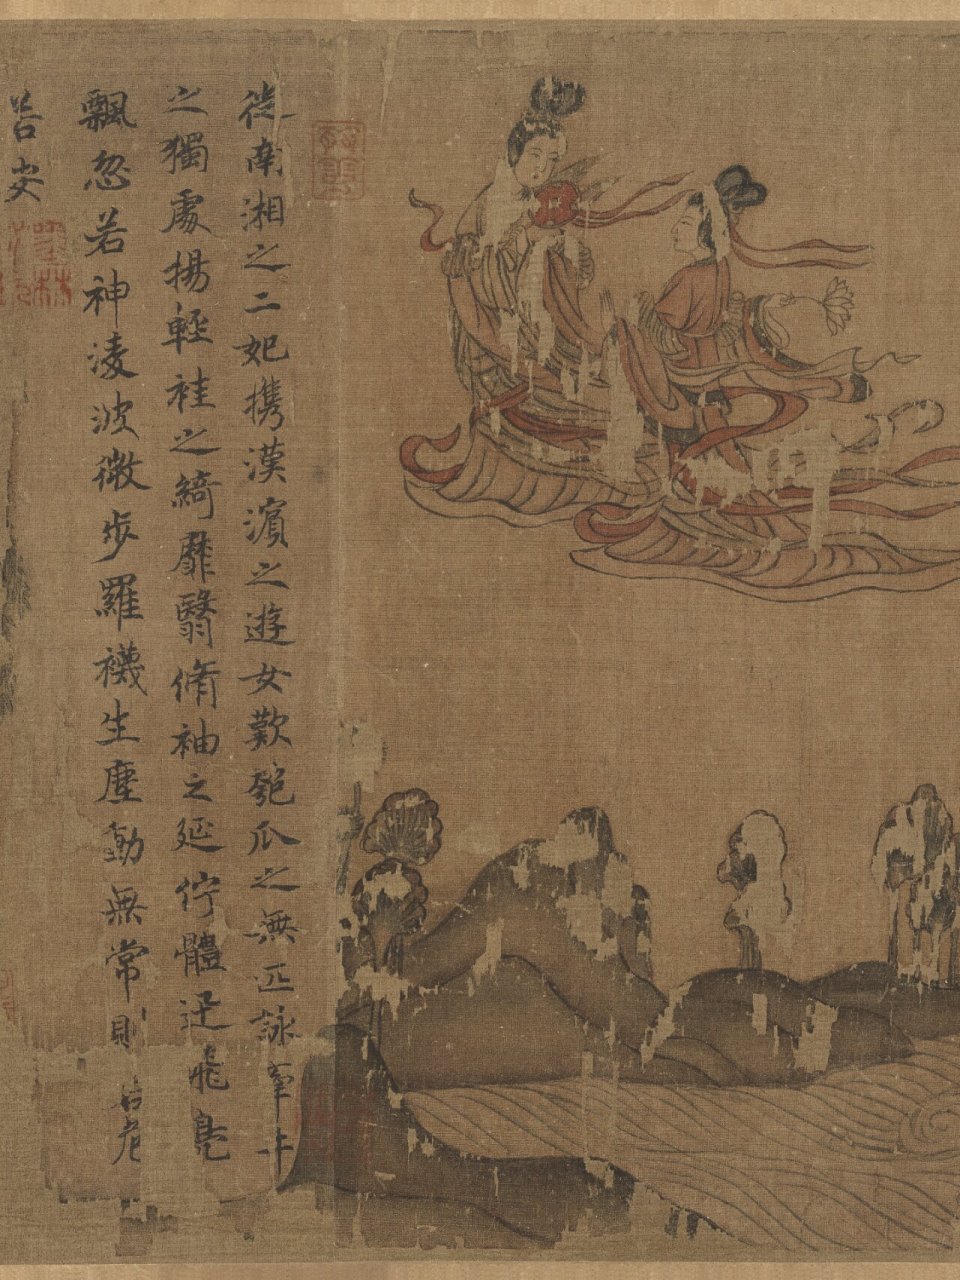 從南湘之二妃攜漢濱之遊女歎匏瓜之無匹詠牽牛
之獨處揚輕袿之綺靡翳脩袖之延佇體迅飛鳧
飄忽若神淩波微步羅襪生塵動無常則若危
若安